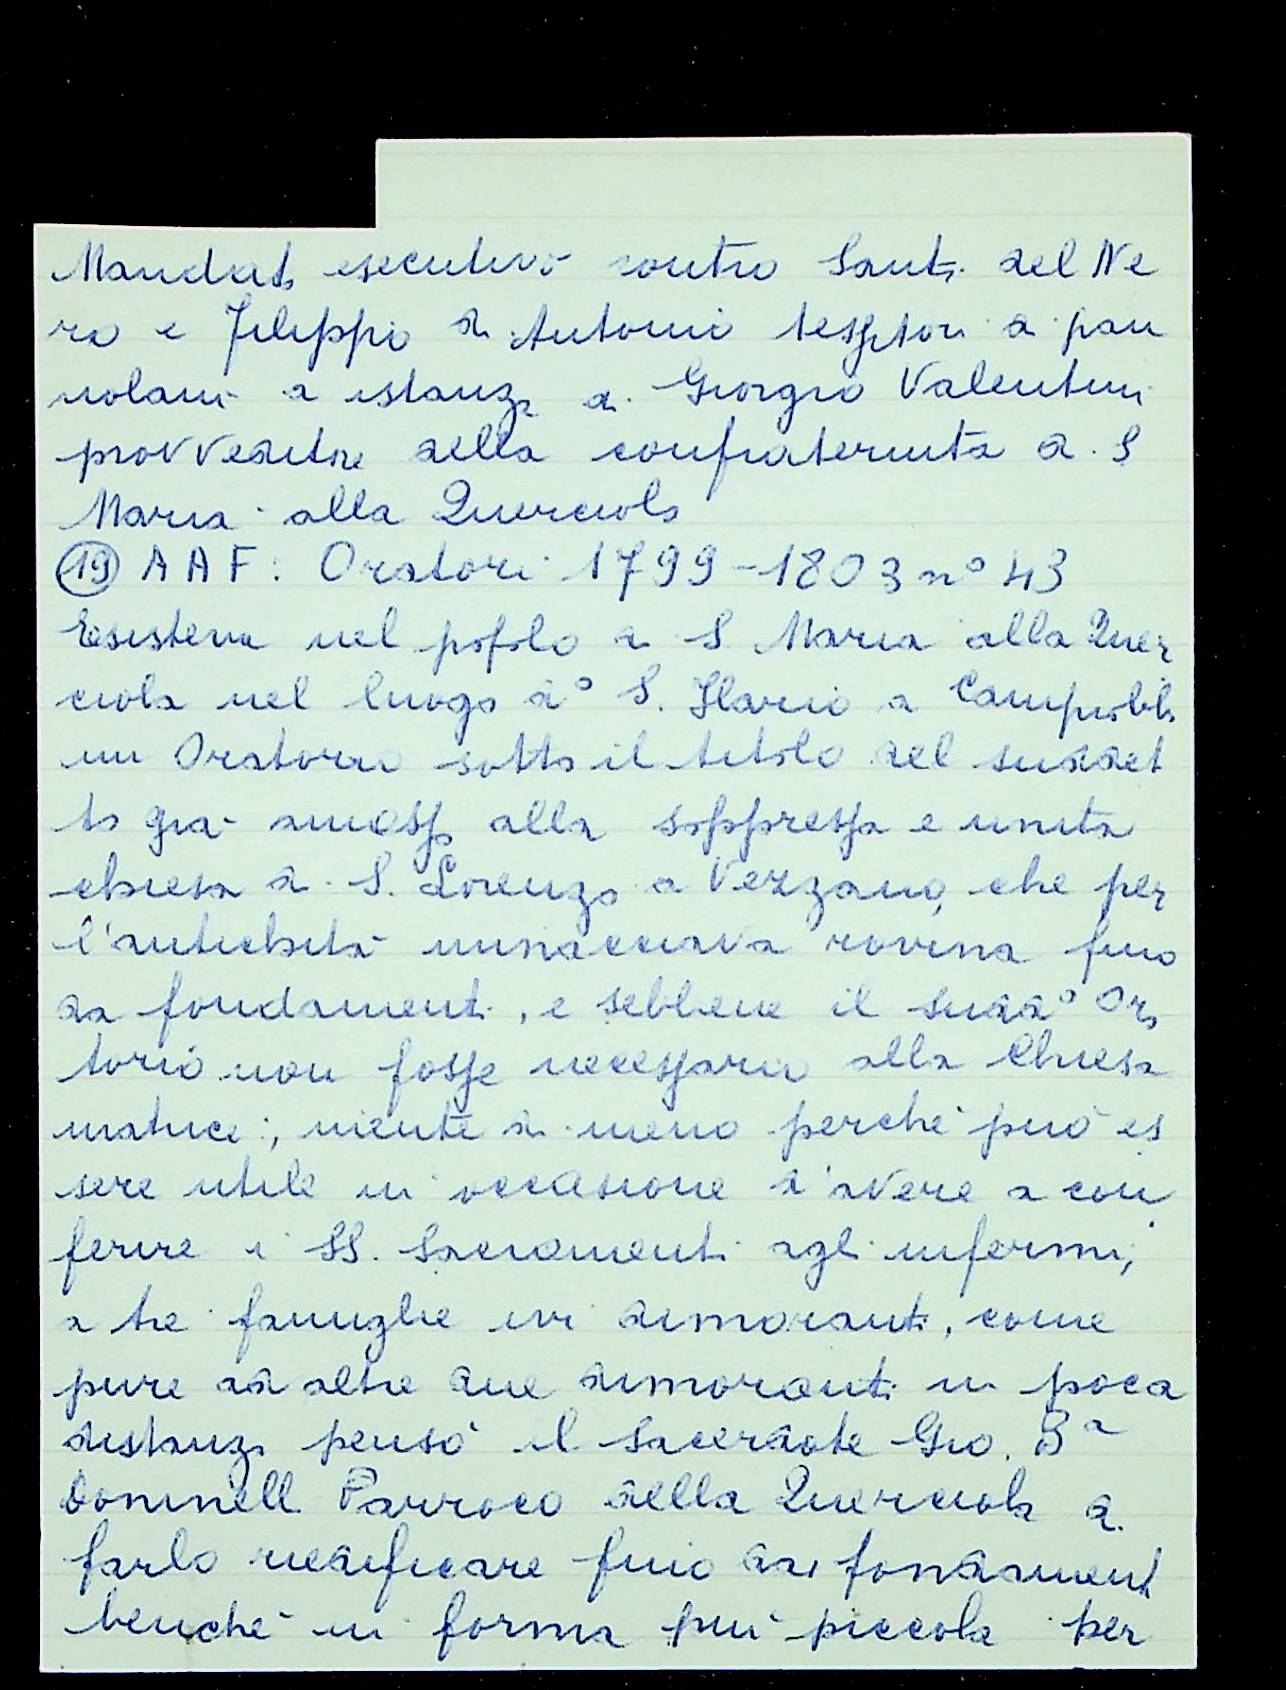 Mandato esecutivo contro Santi del Ne
ro e Filippo di Antonio tessitori di pan
nolani a istanza di Giorgio Valentini
provveditore della confraternita di S
Maria alla Querciola
(19) AAF: Oratori 1799-1803 n° 43
Esisteva nel popolo di S Maria alla Quer
ciola nel luogo d° S. Ilario a Campiobbi
un Oratorio sotto il titolo del suddet
to già annesso alla soppressa e unita
chiesa di S. Lorenzo a Vezzano, che per
l'antichità minacciava rovina fino
da fondamenti, e sebbene il sudd° Ora
torio non fosse necessario alla Chiesa
matrice; niente di meno perché può es
sere utile in occasione d'avere a con
ferire i SS. Sacramenti agli infermi,
a tre famiglie ivi dimoranti, come
pure ad altre due dimoranti in poca
distanza pensò il Sacerdote Gio. Ba
Doninelli Parroco della Querciola di
farlo riedificare fino dai fondamenti
benché in forma più piccola per